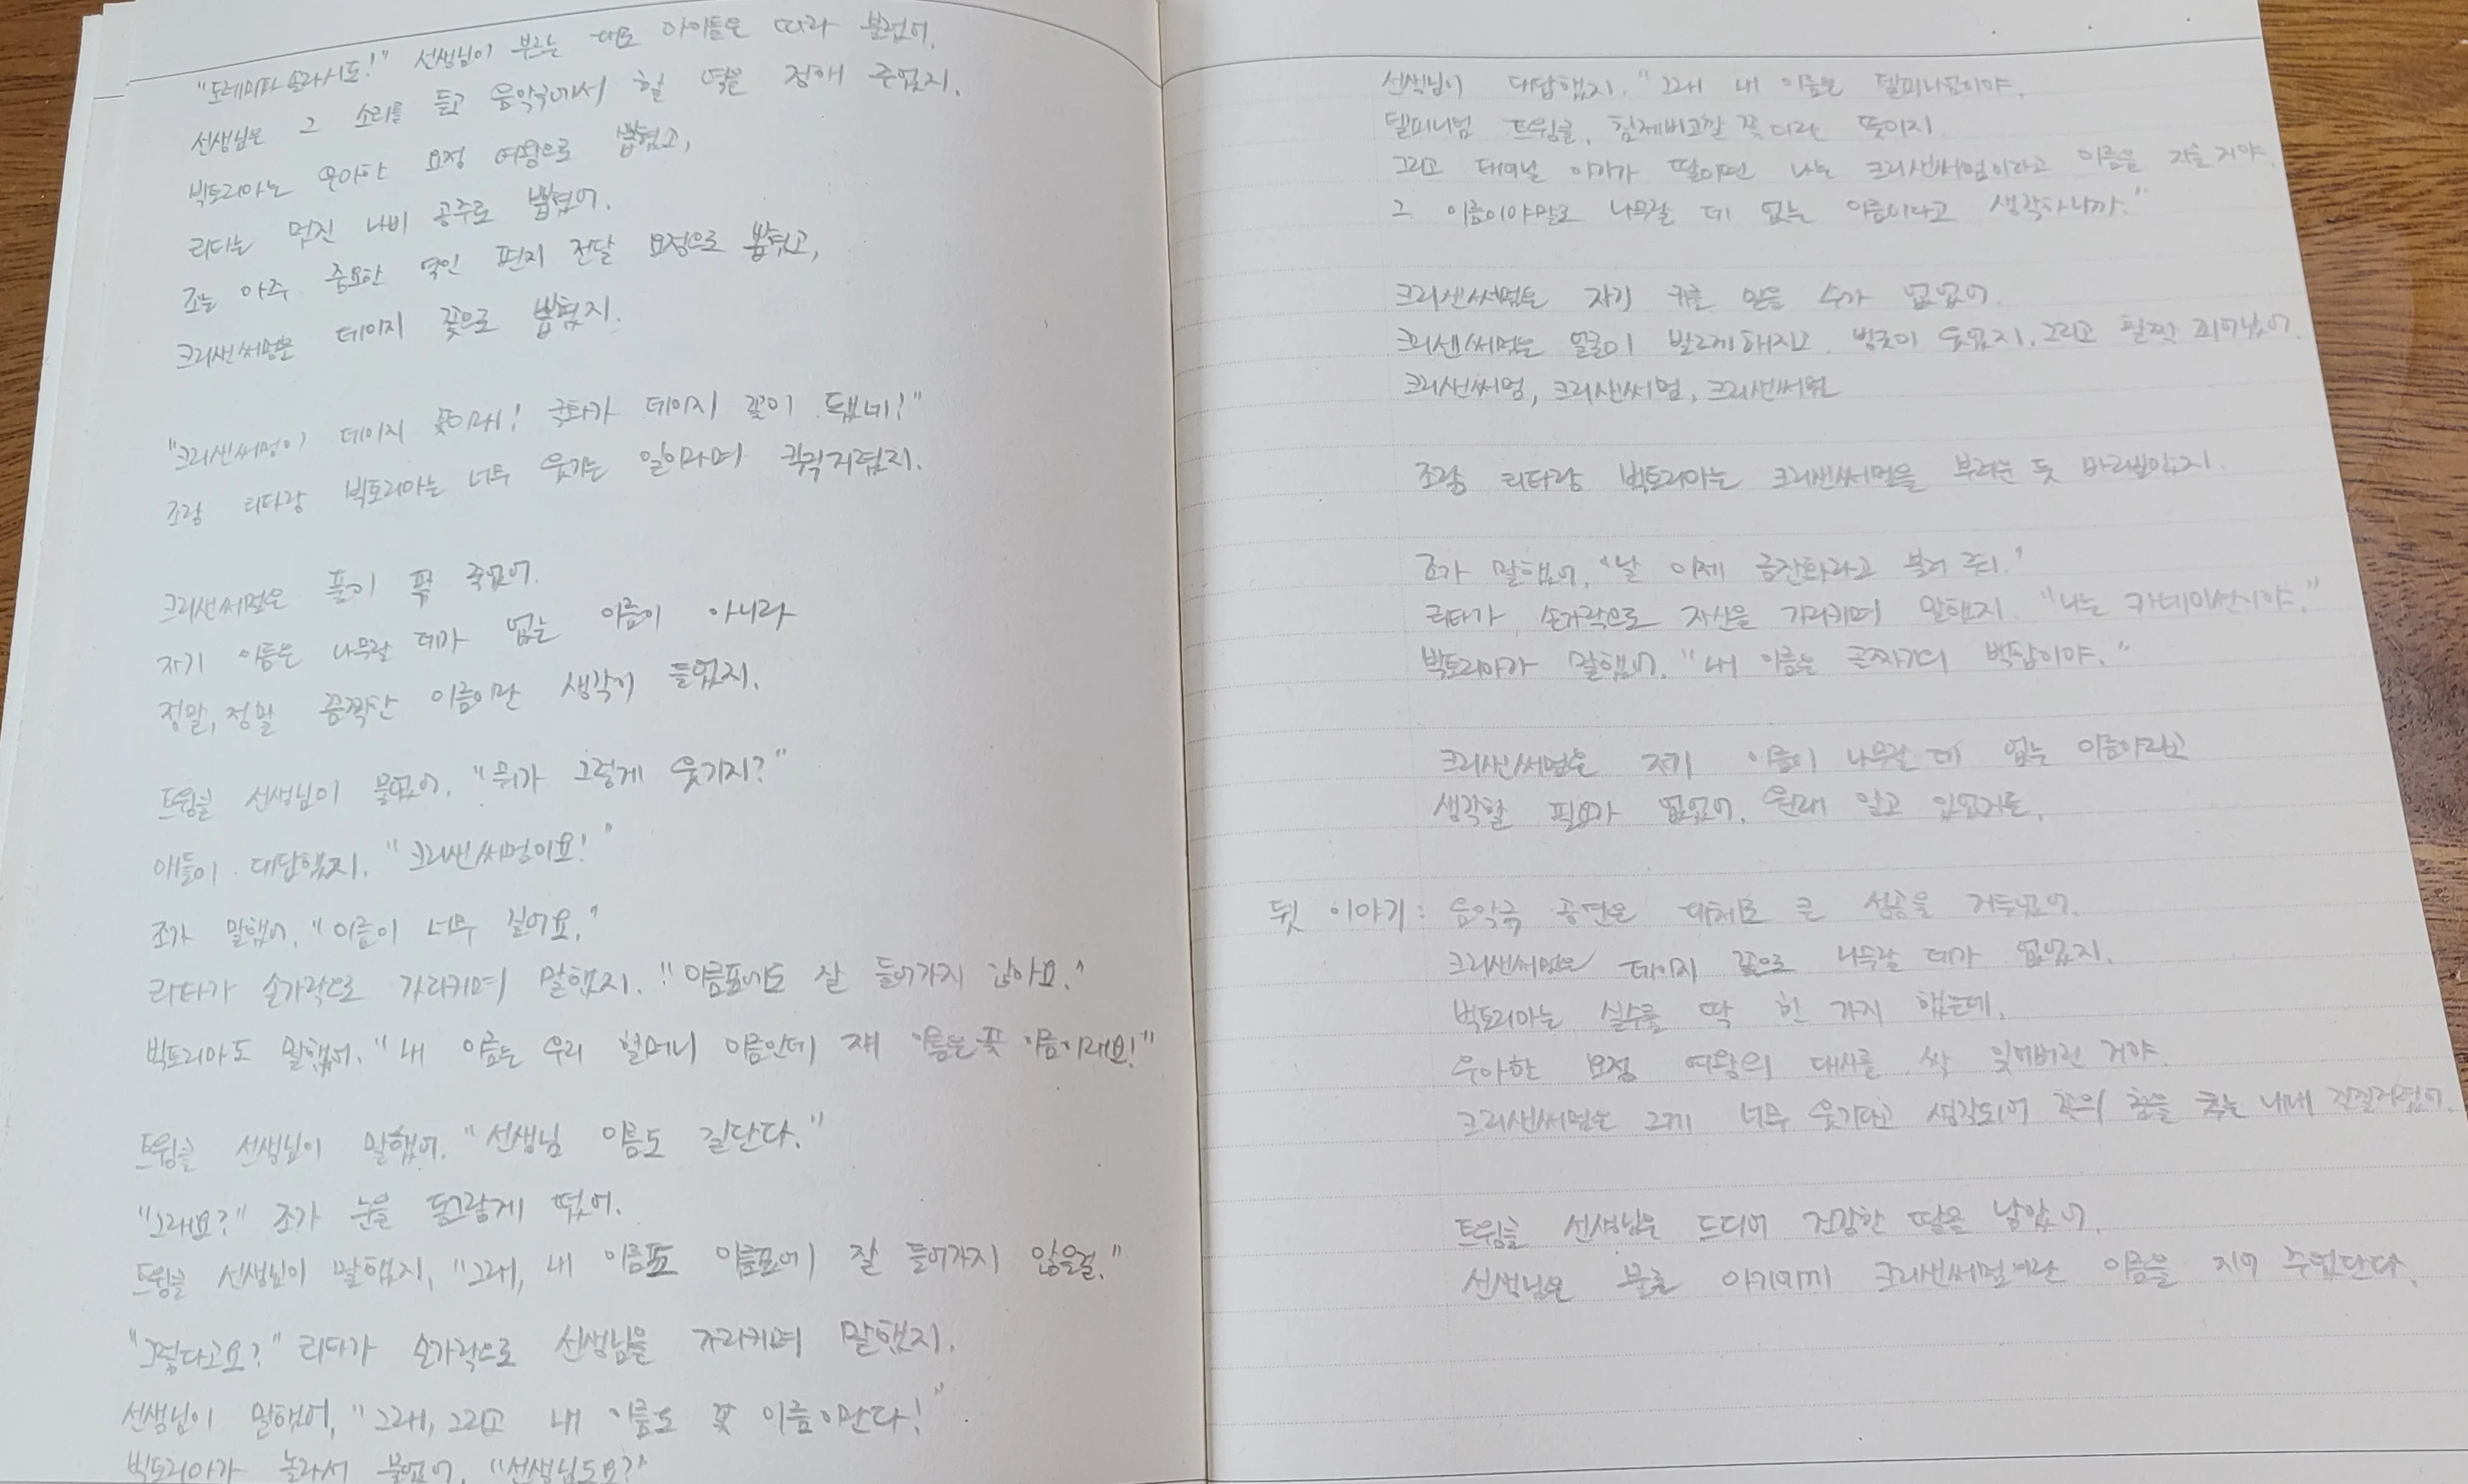 "도레미파솔라시도!" 선생님이 부르는 대로 아이들은 따라 불렀어.
선생님은 그 소리를 듣고 음악극에서 할 역을 정해 주었지.
빅토리아는 우아한 요정 여왕으로 뽑혔고,
리타는 멋진 나비 공주로 뽑혔어.
조는 아주 중요한 역인 편지 전달 요정으로 뽑혔고,
크리샌써멈은 데이지 꽃으로 뽑혔지.
"크리샌써멈이 데이지 꽃이래! 국화가 데이지 꽃이 됐네!"
조랑 리타랑 빅토리아는 너무 웃기는 일이라며 킥킥거렸지.
크리샌써멈은 풀이 팍 죽었어.
자기 이름은 나무랄 데가 없는 이름이 아니라
정말, 정말 끔찍한 이름이란 생각이 들었지.
트윙클 선생님이 물었어. "뭐가 그렇게 웃기지?"
애들이 대답했지. "크리샌써멈이요!"
조가 말했어. "이름이 너무 길어요."
리타가 손가락으로 가리키며 말했지. "이름표에도 잘 들어가지 않아요."
빅토리아도 말했어. "내 이름는 우리 할머니 이름인데 쟤 이름은 꽃 이름이래요!"
트윙클 선생님이 말했어. "선생님 이름도 길단다."
"그래요?" 조가 눈을 동그랗게 떴어.
트윙클 선생님이 말했지, "그래, 내 이름도 이름표에 잘 들어가지 않을걸."
"그렇다고요?" 리타가 손가락으로 선생님을 가리키며 말했지.
선생님이 말했어, "그래, 그리고 내 이름도 꽃 이름이란다!"
빅토리아가 놀라서 물었어. "선생님도요?"
선생님이 대답했지. "그래 내 이름은 델피니움이야.
델피니엄 트윙클, 참제비고깔 꽃이란 뜻이지.
그리고 태어날 아기가 딸이면 나는 크리샌써멈이라고 이름을 지을 거야.
그 이름이야말로 나무랄 데 없는 이름이라고 생각하니까."
크리샌써멈은 자기 귀를 믿을 수가 없었어.
크리샌써멈은 얼굴이 발그레해지고 벙긋이 웃었지. 그리고 활짝 피어났어.
크리샌써멈, 크리샌써멈, 크리샌써멈
조랑 리타랑 빅토리아는 크리샌써멈을 부러운 듯 바라보았지.
조가 말했어, "날 이제 금잔화라고 불러 줘."
리타가 손가락으로 자신을 가리키며 말했지. "나는 카네이션이야."
빅토리아가 말했어. "내 이름는 은빛가의 백합이야."
크리샌써멈은 자기 이름이 나무랄 데 없는 이름이라고
생각할 필요가 없었어. 원래 알고 있었거든.
뒷 이야기: 음악극 공연은 대체로 큰 성공을 거두었어.
크리샌써멈은 데이지 꽃으로 나무랄 데가 없었지.
빅토리아는 실수를 딱 한 가지 했는데,
우아한 요정 여왕의 대사를 싹 잊어버린 거야.
크리샌써멈은 그게 너무 웃기다고 생각되어 꽃의 춤을 추는 내내 낄낄거렸어.
트윙클 선생님은 드디어 건강한 딸을 낳았어.
선생님은 물론 아기에게 크리샌써멈이란 이름을 지어 주었단다.